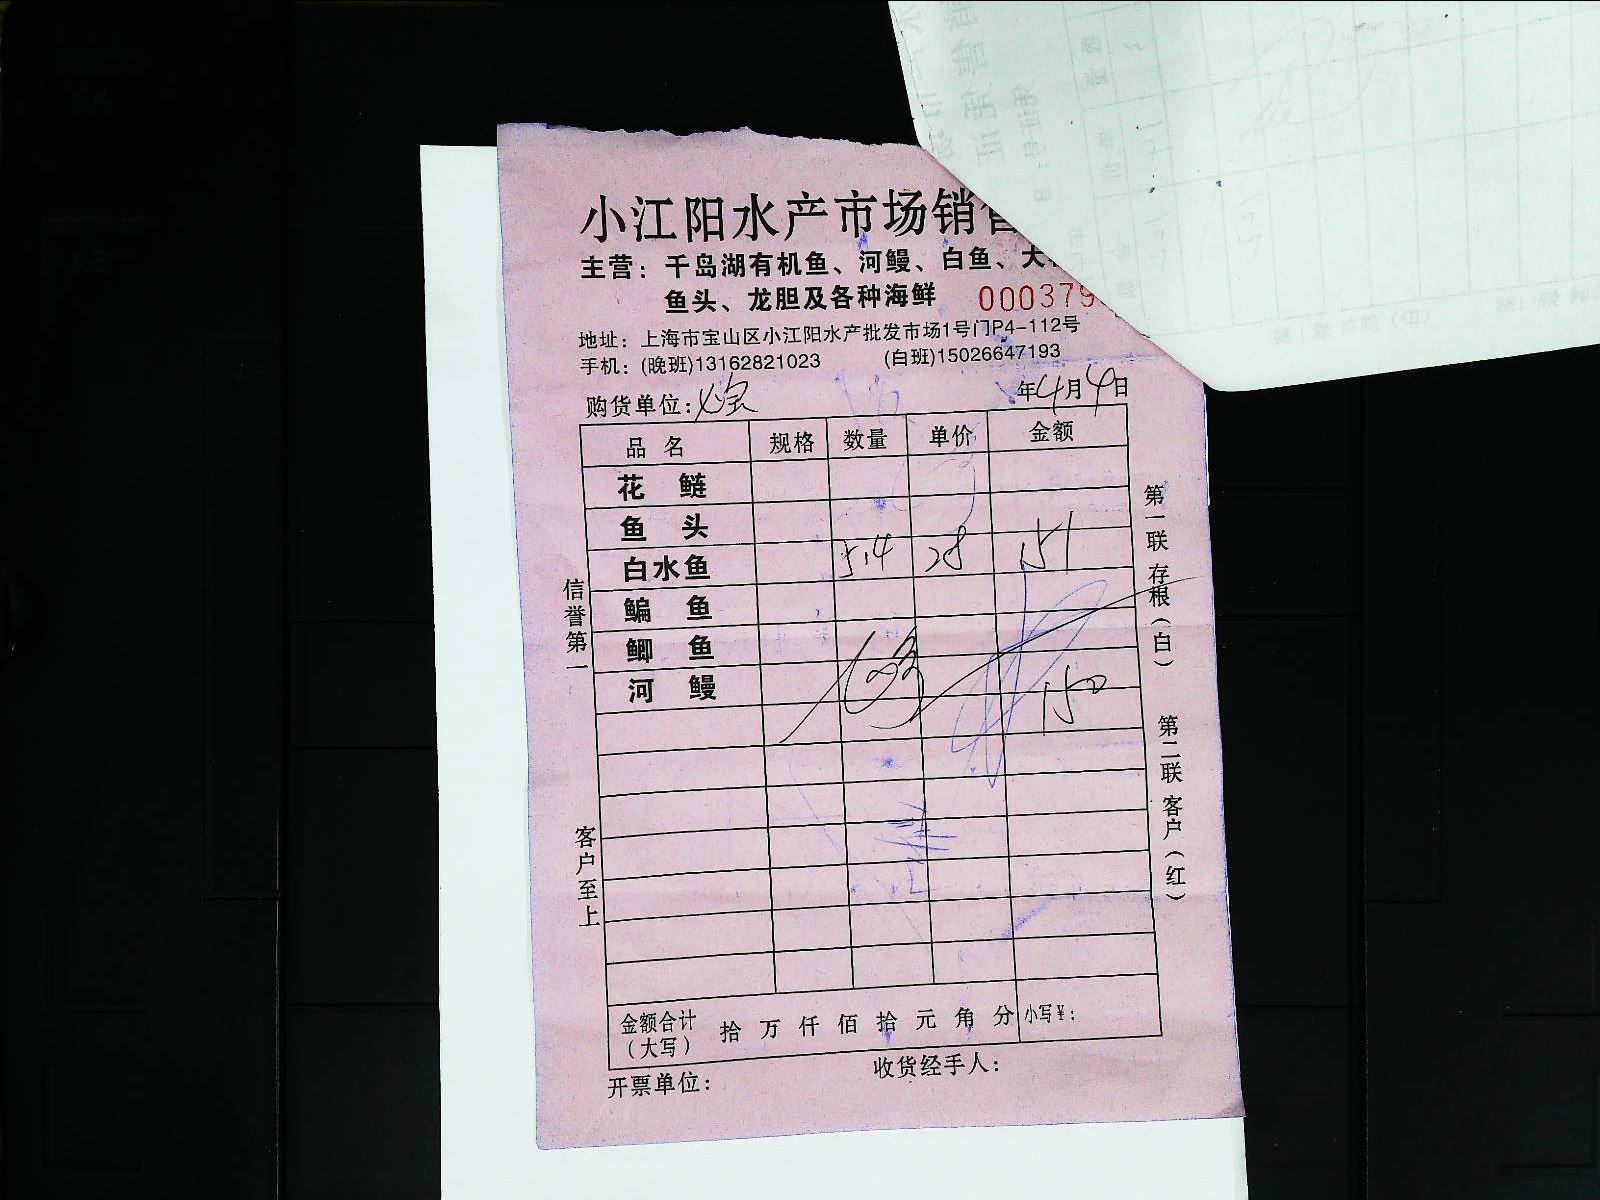 小江阳水产市场销售
主营：千岛湖有机鱼、河鳗、白鱼、大
鱼头、龙胆及各种海鲜
000379
地址：上海市宝山区小江阳水产批发市场1号门P4-112号
手机：(晚班)13162821023 (白班)15026647193
购货单位： 年4月4日
品名 规格 数量 单价 金额
花鲢
鱼头
白水鱼 5.4 28 151
鳊鱼
鲫鱼
河鳗 150
金额合计（大写） 拾万仟佰拾元角分 小写¥：
开票单位： 收货经手人：
信誉第一
客户至上
第一联存根（白）
第二联客户（红）